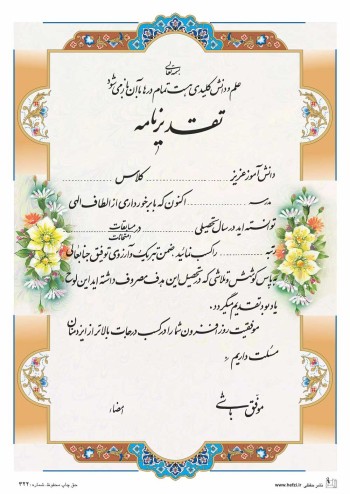 بسمه تعالی
علم و دانش کلیدی است تمام درها با آن باز می شود
تقدیرنامه
دانش آموز عزیز .......................... کلاس ..........................
مدرسه .......................... اکنون که با برخورداری از الطاف الهی
توانسته اید در سال تحصیلی .......................... در مسابقات امتحانات ..........................
رتبه .......... را کسب نمائید، ضمن تبریک و آرزوی توفیق جنابعالی
به پاس کوشش و تلاشی که در تحصیل این هدف مصروف داشته اید این لوح
یادبود تقدیم میگردد.
موفقیت روز افزون شما را در کسب درجات بالاتر از ایزد منان
مسئلت داریم
موفق باشی
امضاء:
حق چاپ محفوظ. شماره: ۳۲۲
www.hefzi.ir نشر حفظی